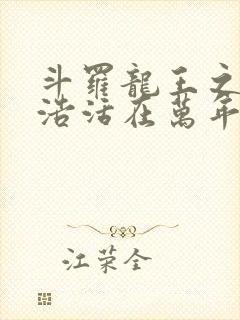 斗羅龍王之
浩活在萬年
江荣全